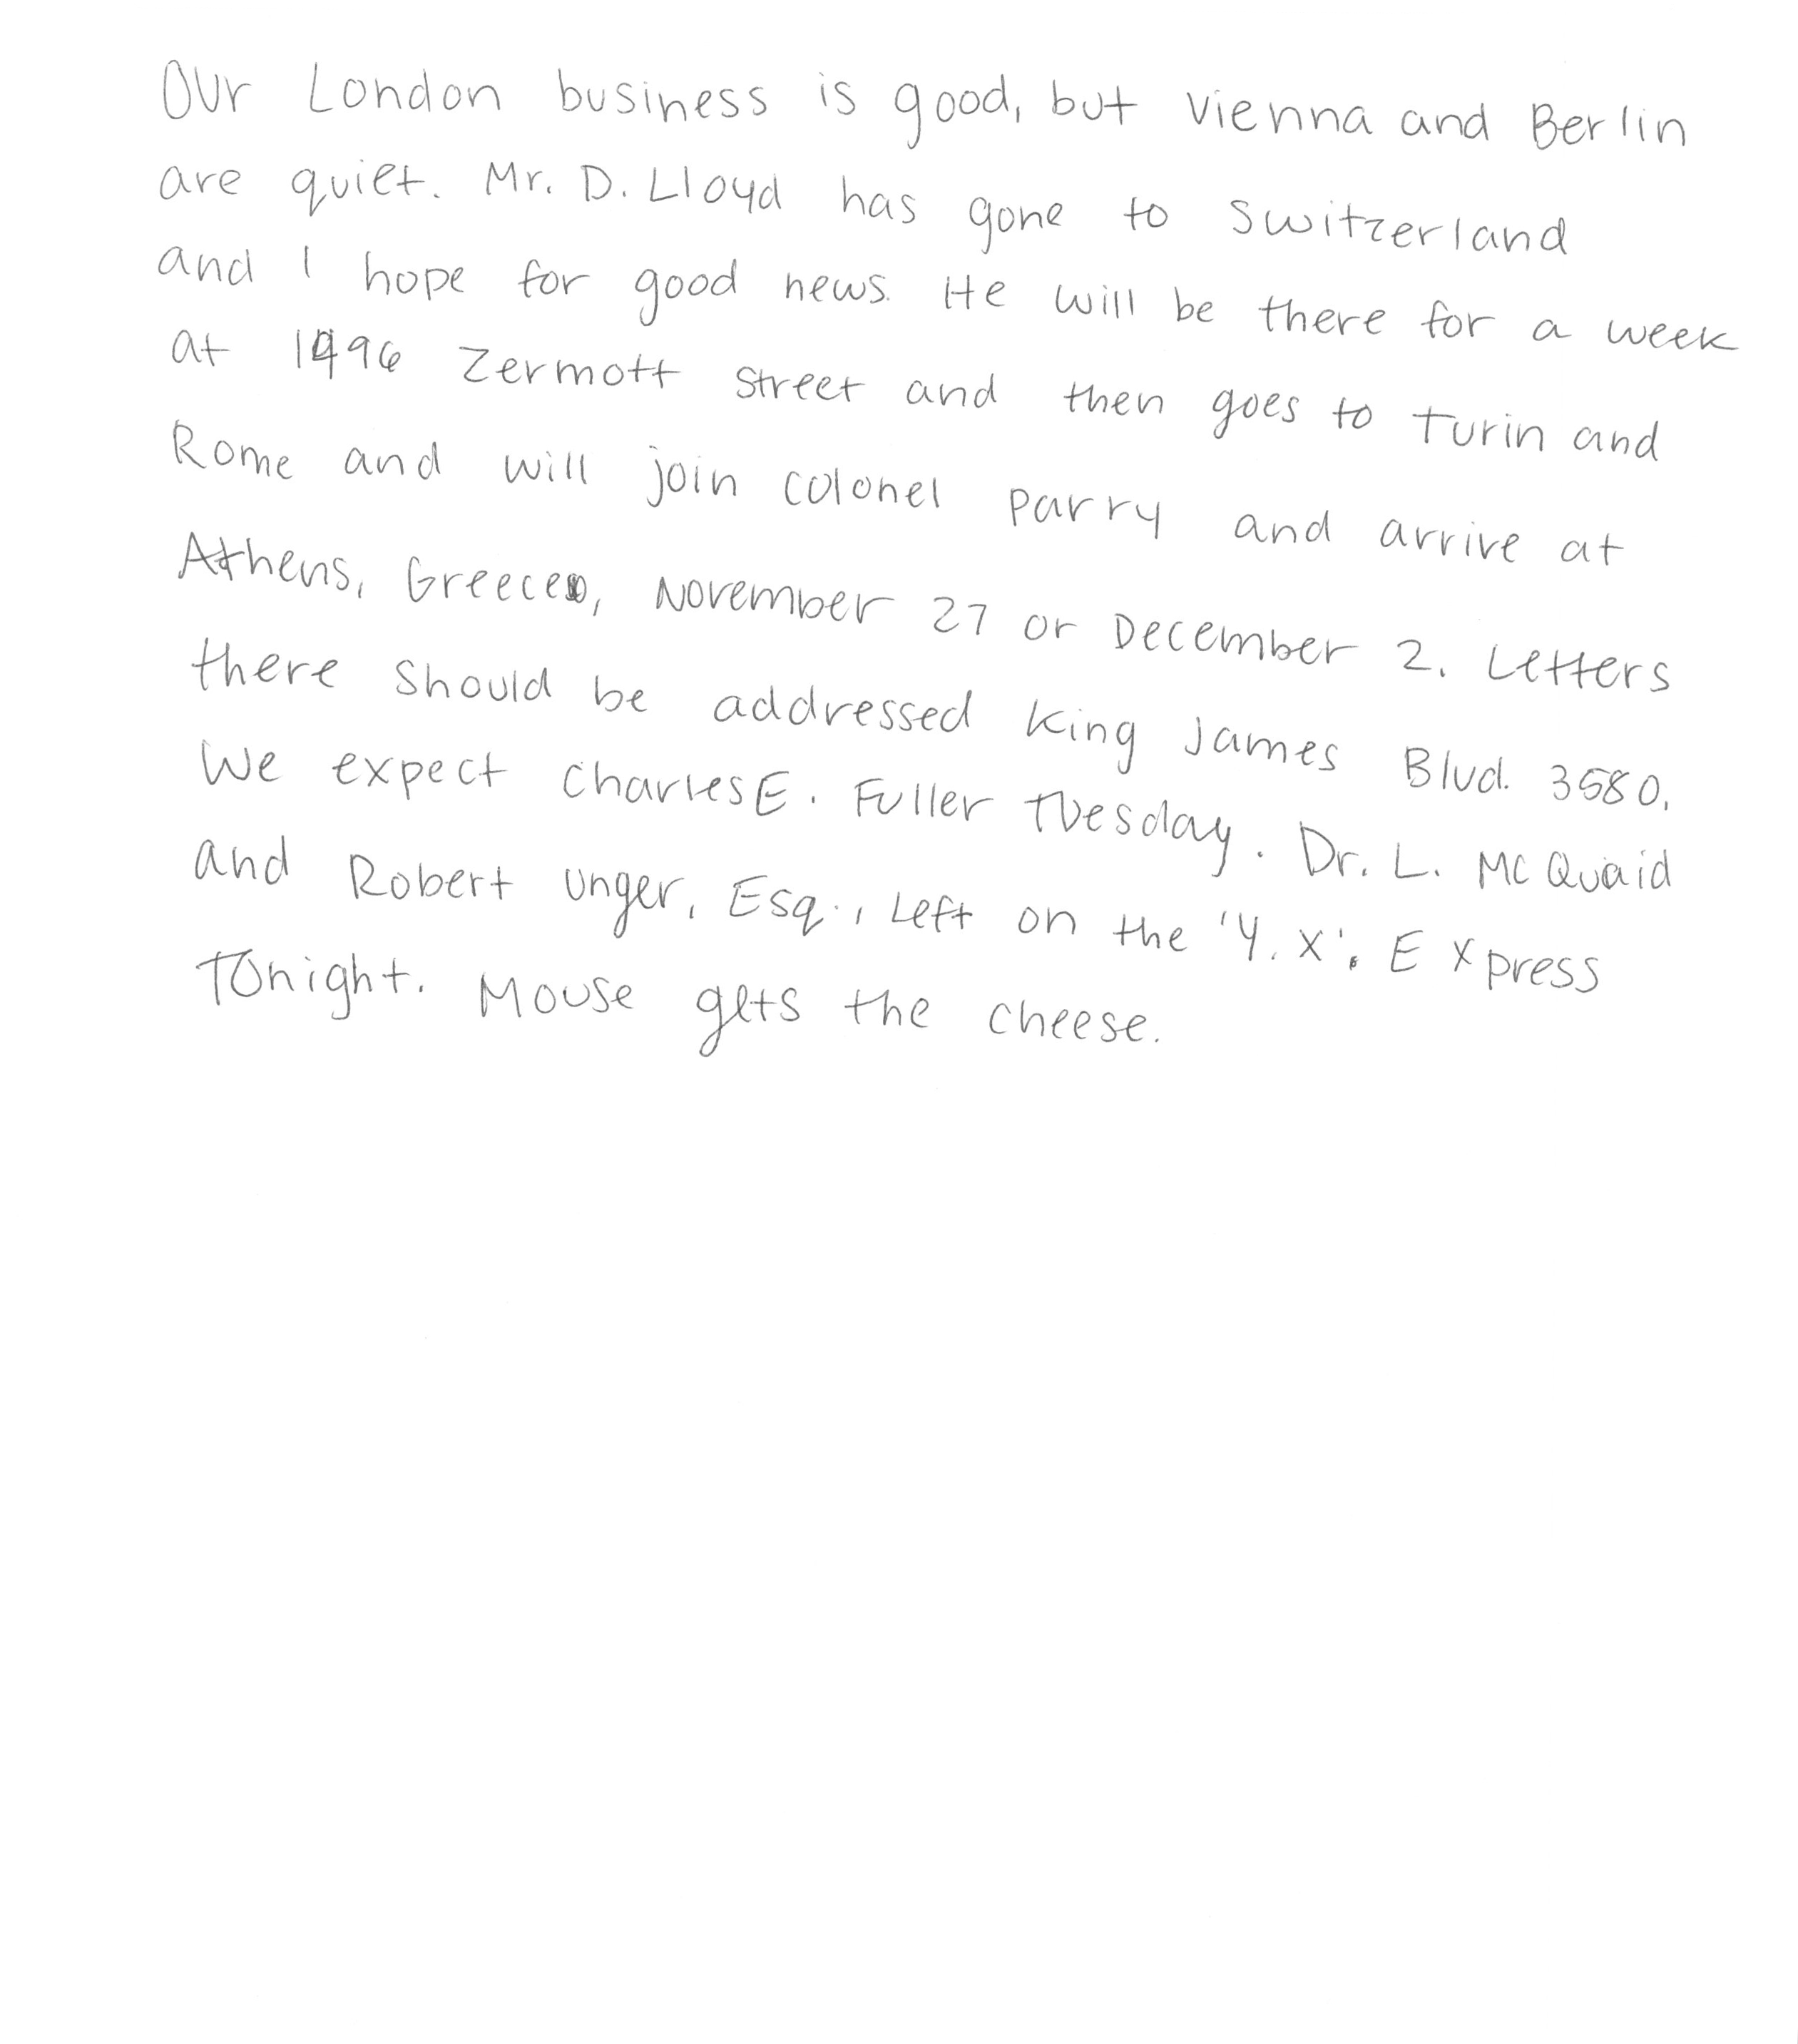 Our London business is good, but Vienna and Berlin
are quiet. Mr. D. Lloyd has gone to Switzerland
and I hope for good news. He will be there for a week
at 1496 Zermott Street and then goes to Turin and
Rome and will join Colonel Parry and arrive at
Athens, Greece, November 27 or December 2. Letters
there should be addressed King James Blvd. 3580.
We expect Charles E. Fuller Tuesday. Dr. L. McQuaid
and Robert Unger, Esq., Left on the 'Y.X'. Express
Tonight. Mouse gets the cheese.